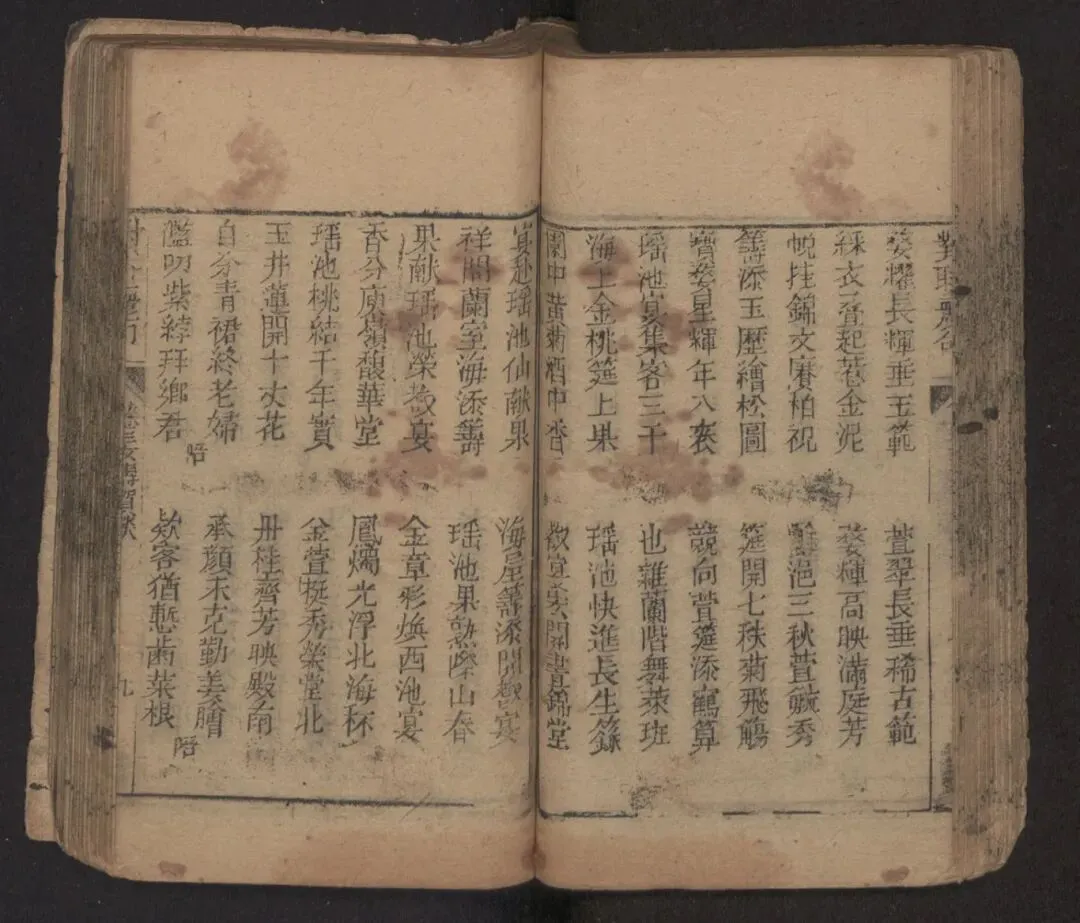 對聯
婺耀長輝垂玉範
萱翠長垂稀古範
綵衣香起巷金泥
婺輝高映滿庭芳
帨挂錦文賡柏祝
浥三秋萱毓秀
籌添玉歷繪松圖
筵開七秩菊飛觴
寶婺星輝年八袠
競向萱筵添鶴算
瑶池宴集客三千
也雜蘭階舞萊班
海上金桃筵上果
瑶池快進長生籙
閫中黄菊酒中香
歡宴 開晝錦堂
宴赴瑶池仙献果
海屋籌添開 宴
祥開蘭室海添籌
瑶池果熟 山春
果献瑶池榮 宴
金章彩焕西池宴
香分庾嶺馥華堂
鳳燭光浮北海杯
瑶池桃結千年實
金萱挺秀榮堂北
玉井蓮開十丈花
丹桂齊芳映殿南
自分青裙終老婦
承顔未克勤姜膾
濫叨紫綍拜鄉君
款客猶慙 菜根
九